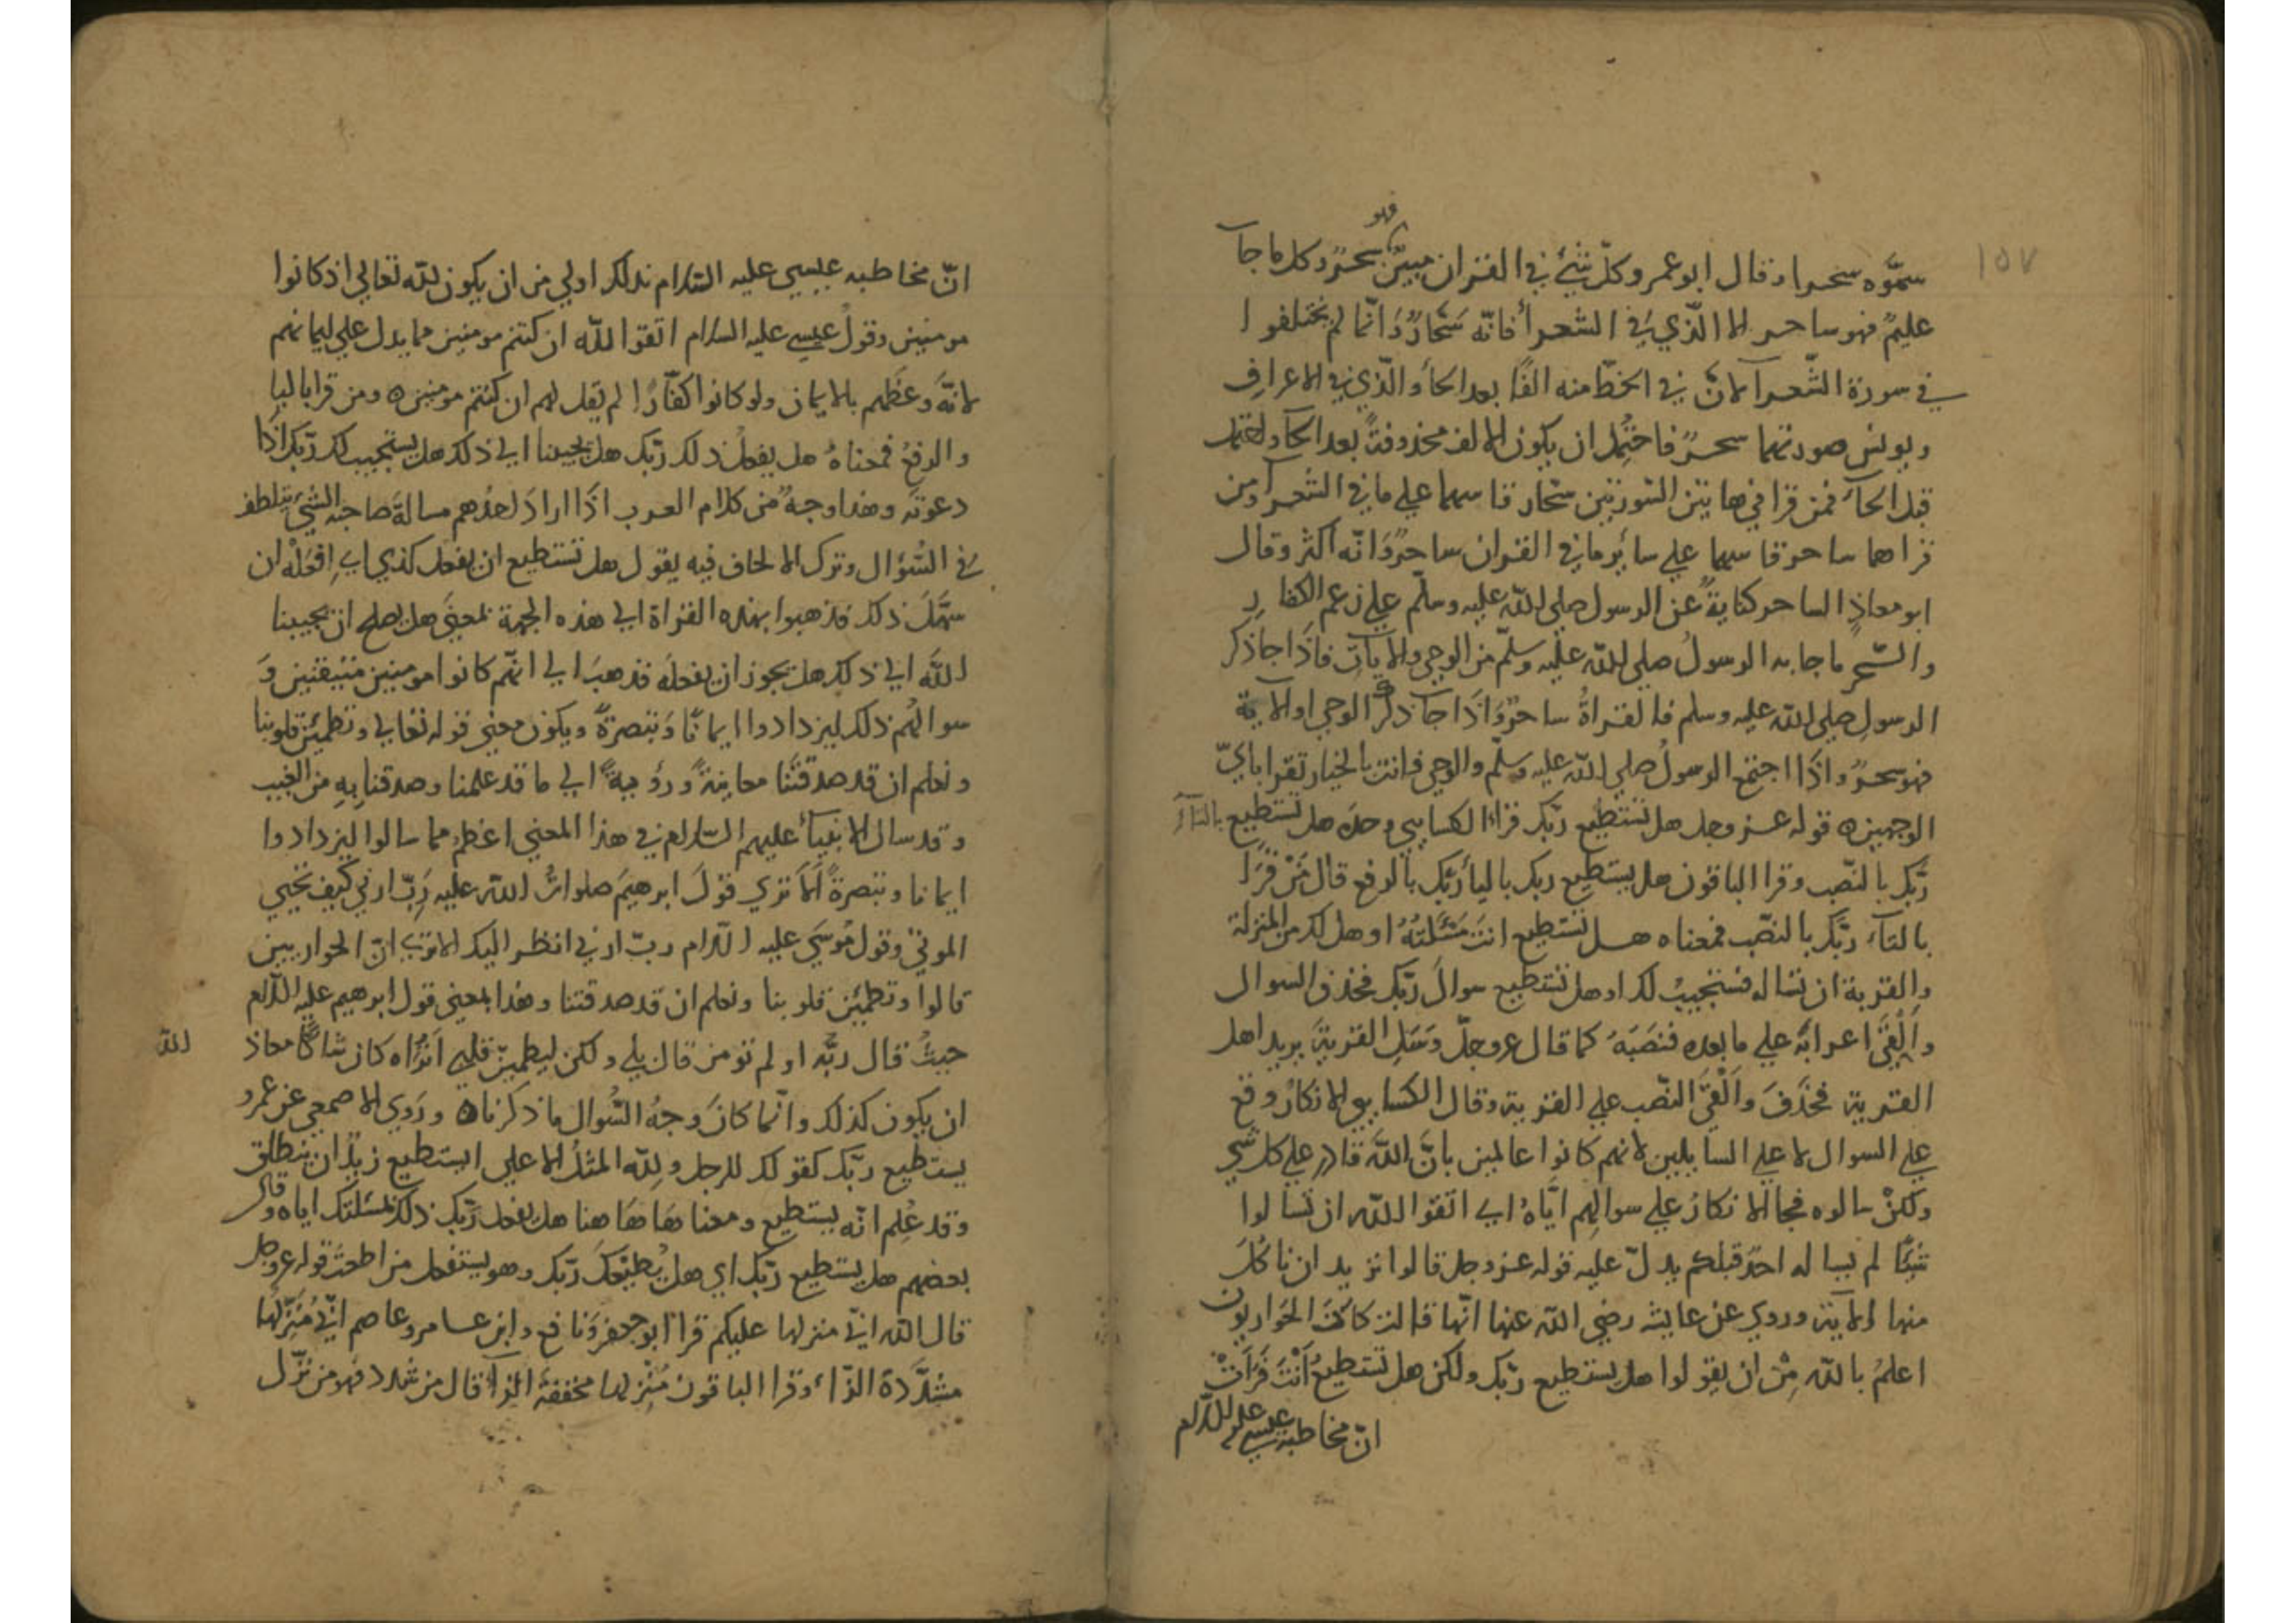 ١٥٧
فهو
سمّوه سحرا وقال ابو عمرو كلّ شئ في القران مبينٌ سحرٌ وكل ما جآ
عليمٌ فهو ساحر الا الّذي في الشعرأ فانّه سَحّارٌ وَانّما لم يختلفوا
في سورة الشّعرآ لانّ في الخطّ منه الفًا بعد الحأ والّذي في الاعراف
ويونس صورتهما سحرٌ فاحتُمِل ان يكون الالف محذوفةً بعد الحآ ولحتمل
قبل الحآء فمن قرا في هاتين السّورتين سحّار قاسهما علي ما في الشعرآ ومن
قراهما ساحر قاسهما علي سائر ما في القران ساحرٌ وَانّه اكثر وقال
ابو معاذٍ الساحر كنايةٌ عن الرسول صلي الله عليه وسلّم علي زعم الكفار
والسّحر ما جا به الرسولُ صلي الله عليه وسلّم من الوحي والايات فاذَا جا ذكر
الرسولِ صلي الله عليه وسلم فالقراةُ ساحرٌ وَاذَا جآ ذكر الوحي او الاية
فهو سحرٌ واذَا اجتمع الرسولُ صلي الله عليه وسلّم والوحي فانت بالخيار تقرا بايّ
الوجهين ٥ قوله عز وجل هل تستطيع ربّك قرأ الكسايي وحده هل تستطيع بالتآء
ربَّك بالنصّب وقرا الباقون هل يستطيع ربك باليأ ربّك بالرفع قال مَنْ قَرَا
بالتآء ربَّك بالنصّب فمعناه هل تستطيع انتَ مَسْئَلتَهُ او هل لك من المنزلة
والقربة ان تساله فيستجيب لك او هل تستطيع سوالَ ربّك فحذف السوال
وَاَلْقَى اعرابَه علي ما بعده فنَصَبَهُ كما قال عز وجلّ وَسَلِ القريةَ يريد اهل
القرية فحَذَفَ وَاَلْقَى النصّب علي القرية وقال الكسايي الانكارُ وقع
علي السوال لا علي السايلين لانهم كانوا عالمين بانّ اللهَ قادر علي كل شي
ولكنْ سالوه فجا الانكارُ علي سوالِهم ايّاهُ اي اتقوا الله ان تسالوا
شيئًا لم يساله احدٌ قبلكم يدلّ عليه قوله عز وجل قالوا نريد ان ناكلَ
منها الاية وروي عن عايشة رضي الله عنها انّها قالت كانَتْ الحواريون
اعلمُ بالله مِنْ ان يقولوا هل يستطيع ربّك ولكن هل تستطيعُ اَنْتَ فَرَاَتْ
انّ مخاطبة عيسي عليه السلام
انّ مخاطبه عيسي عليه السّلام بذلك اولي من ان يكون لله تعالي اذ كانوا
مومنين وقولُ عيسي عليه السلام اتقوا الله ان كنتم مومنين مما يدل علي ايمانهم
لانّه وَعظهم بالايمان ولو كانوا كفّارًا لم يقل لهم ان كنتم مومنين ٥ ومن قرا باليا
والرفع فمعناهُ هل يفعلُ ذلك ربّك هل يجيبنا الي ذلك هل يستجيب لك ربّك اذَا
دعوتَه وهذا وجهٌ من كلام العرب اذَا ارادَ احدُهم مسالةَ صاحبه الشّئَ يتلطف
في السُّؤال وترك الالحاف فيه يقول هل تستطيع ان تفعل كذي اي اِفعَلْه ان
سَهُلَ ذلك فذهبوا بهذه القراة الي هذه الجهة بمعنَى هل يصلح ان يجيبنا
اللهَ الي ذلك هل يجوز ان يفعلَه فذهبَ الي انّهم كانوا مومنين متيقنين وَ
سوالهُم ذلك ليزدادوا ايمانًا وَتبصرةً ويكون معني قوله تعالي وتطمئن قلوبنا
ونعلم ان قد صدقتَنا معاينةً ورؤيةً الي ما قد علمنا وصدقنا بِهِ من الغيب
وقد سال الانبيآء عليهم السّلام في هذا المعني اعظمَ مما سالوا ليزدادوا
ايمانا وتبصرةً اَلَا تري قولَ ابرهيمَ صلواتُ الله عليه رَبّ ارني كيف تحيي
الموتي وقول مُوسَي عليه السلام ربّ ارني انظر اليك الا تري انّ الحواريين
قالوا وتطمئِن قلوبنا ونعلم ان قد صدقتنا وهذا بمعني قول ابرهيم عليه السلام
حيثُ قال ربُّه او لم تومن قال بلي ولكن ليطمئِنّ قلبي اَتُرَاه كان شاكًّا معاذ
الله
ان يكون كذلك وانّما كانَ وَجهُ السُّوال ما ذكرناه ٥ ورَوي الاصمعي عن عمرو
يستطيع ربّك كقولك للرجل ولله المثلُ الاعلي ايستطيع زيدٌ ان ينطلق
وقد عُلِم انّه يستطيع ومعناهَا هَاهنا هل يفعل ربّك ذلك لمسئلتك اياه وقال
بعضهم هل يستطيع ربّك اي هل يُطيْعكَ ربّك وهو يستفعل من اطعتُ قوله عز وجل
قال الله انّي منزلها عليكم قرا ابو جعفر وَنافع وابن عامر وعاصم انّي مُنَزّلُها
مشدَّدة الزّاء وقرا الباقون مُنْزِلها مخففة الزآ قال من شدد فهو من نزّل